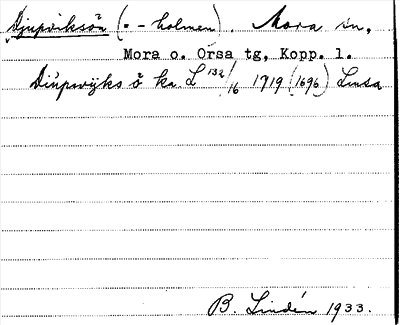 Djupviksön (- - holmen). Mora sn,
Mora o. Orsa tg, Kopp. l.
Diúpwijks ö ka L 132/16 1719 (1696) Linsa
B. Lindén 1933.